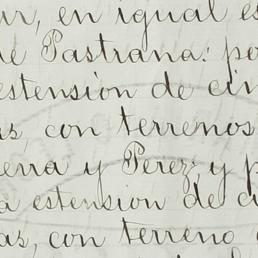 ur, en igual es
de Pastrana: po
estensión de cin
as, con terrenos
erra y Perez; y p
a estension de ci
as, con terreno